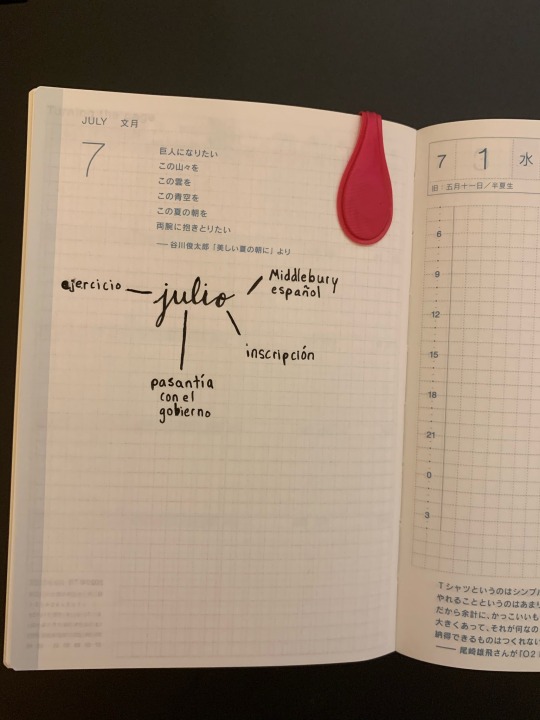 JULY 文月
7
巨人になりたい
この山々を
この雲を
この青空を
この夏の朝を
両腕に抱きとりたい
——谷川俊太郎「美しい夏の朝に」より
ejercicio
julio
Middlebury
español
inscripción
pasantía
con el
gobierno
7 1 水
旧:五月十一日/半夏生
6
9
12
15
18
21
0
3
Tシャツというのはシンプル
やれることというのはあまり
だから余計に、かっこいいも
大きくあって、それが何なの
納得できるものはつくれない
——尾崎雄飛さんが『02